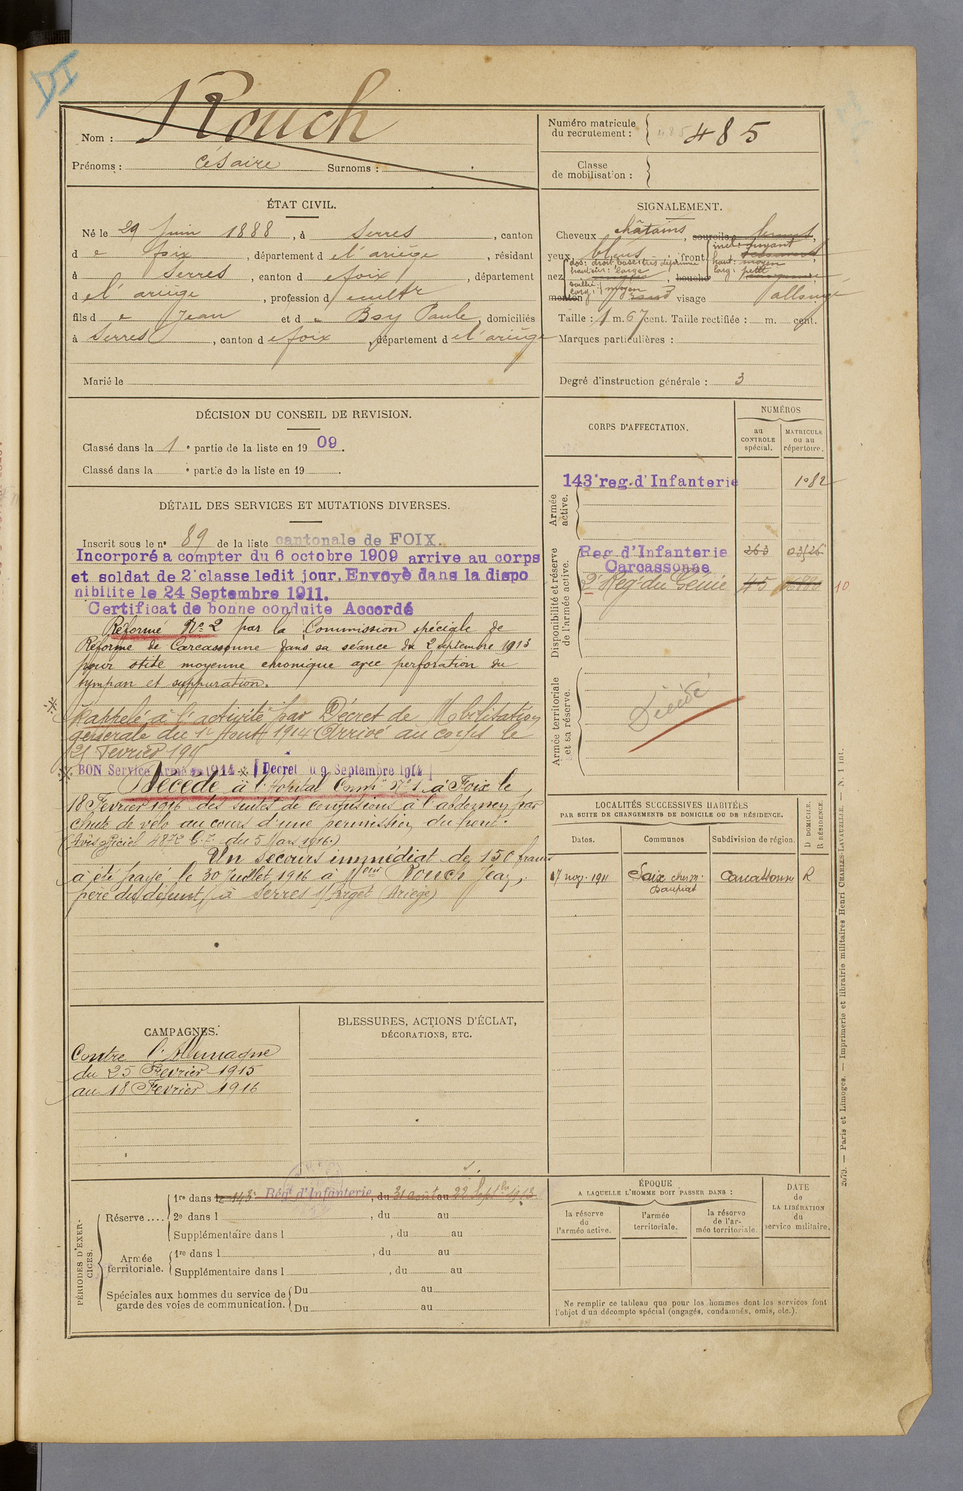 DI
Nom : Rouch
Prénoms : Césaire Surnoms :
Numéro matricule du recrutement : 485
Classe de mobilisation :
ÉTAT CIVIL.
Né le 29 Juin 1888, à Serres, canton
d e Foix, département d e l'ariège, résidant
à Serres, canton d e foix, département
d e l'ariège, profession d cultr
fils d e Jean et d e Bsy Paule, domiciliés
à Serres, canton d e foix, département d e l'ariège
Marié le
SIGNALEMENT.
Cheveux châtains, sourcils
yeux bleus, front incl: fuyant
haut: moyen
larg: petit
nez dos: droit base: très déprimé
hauteur: large
bouche
menton rond visage allongé
Taille : 1 m. 67 cent. Taille rectifiée : m. cent.
Marques particulières :
Degré d'instruction générale : 3
DÉCISION DU CONSEIL DE REVISION.
Classé dans la 1e partie de la liste en 1909.
Classé dans la e partie de la liste en 19 .
CORPS D'AFFECTATION.
NUMÉROS
au CONTROLE spécial.
MATRICULE ou au répertoire.
Armée active.
143e reg. d'Infanterie 1082
Disponibilité et réserve de l'armée active.
Reg d'Infanterie 263
Carcassonne
2e Reg du Génie 45
10
Armée territoriale et sa réserve.
Décédé
DÉTAIL DES SERVICES ET MUTATIONS DIVERSES.
Inscrit sous le no 89 de la liste cantonale de FOIX.
Incorporé a compter du 6 octobre 1909 arrive au corps
et soldat de 2e classe ledit jour. Envoyè dans la dispo
nibilite le 24 Septembre 1911.
Certificat de bonne conduite Accordé
Réformé No 2 par la Commission spéciale de
Réforme de Carcassonne dans sa séance du 2 septembre 1913
pour otite moyenne chronique avec perforation du
tympan et suppuration.
Rappelé à l'activité par Décret de Mobilisation
générale du 1er Août 1914 Arrivé au corps le
25 Fevrier 191
BON Service Armé 1914 [Décret du 9 Septembre 1914]
Décédé à l'Hôpital Compre No 1 à Foix le
18 Fevrier 1916 des suites de contusions à l'abdomen par
chute de vélo au cours d'une permission du front.
(Avis officiel du 5 Mars 1916.)
Un secours immédiat de 150 francs
a été payé le 30 Juillet 1916 à Mr Rouch Jean,
père du défunt, à Serres s/ Arget (Ariège)
LOCALITÉS SUCCESSIVES HABITÉES
PAR SUITE DE CHANGEMENTS DE DOMICILE OU DE RÉSIDENCE.
Dates. Communes Subdivision de région.
D DOMICILE. R RÉSIDENCE.
17 nov. 1911 Carcassonne R
CAMPAGNES.
Contre l'Allemagne
du 25 Fevrier 1915
au 18 Fevrier 1916
BLESSURES, ACTIONS D'ÉCLAT,
DÉCORATIONS, ETC.
PÉRIODES D'EXERCICES.
Réserve....
1re dans le 143e Rég. d'Infanterie, du 31 août au 22 Septbre 1913
2e dans l , du au
Supplémentaire dans l , du au
Armée territoriale.
1re dans l , du au
Supplémentaire dans l , du au
Spéciales aux hommes du service de garde des voies de communication.
Du au
Du au
ÉPOQUE
A LAQUELLE L'HOMME DOIT PASSER DANS :
la réserve de l'armée active.
l'armée territoriale.
la réserve de l'armée territoriale.
DATE de LA LIBÉRATION du service militaire.
Ne remplir ce tableau que pour les hommes dont les services font
l'objet d'un décompte spécial (engagés, condamnés, omis, etc.).
Paris et Limoges. — Imprimerie et librairie militaires Henri CHARLES-LAVAUZELLE.